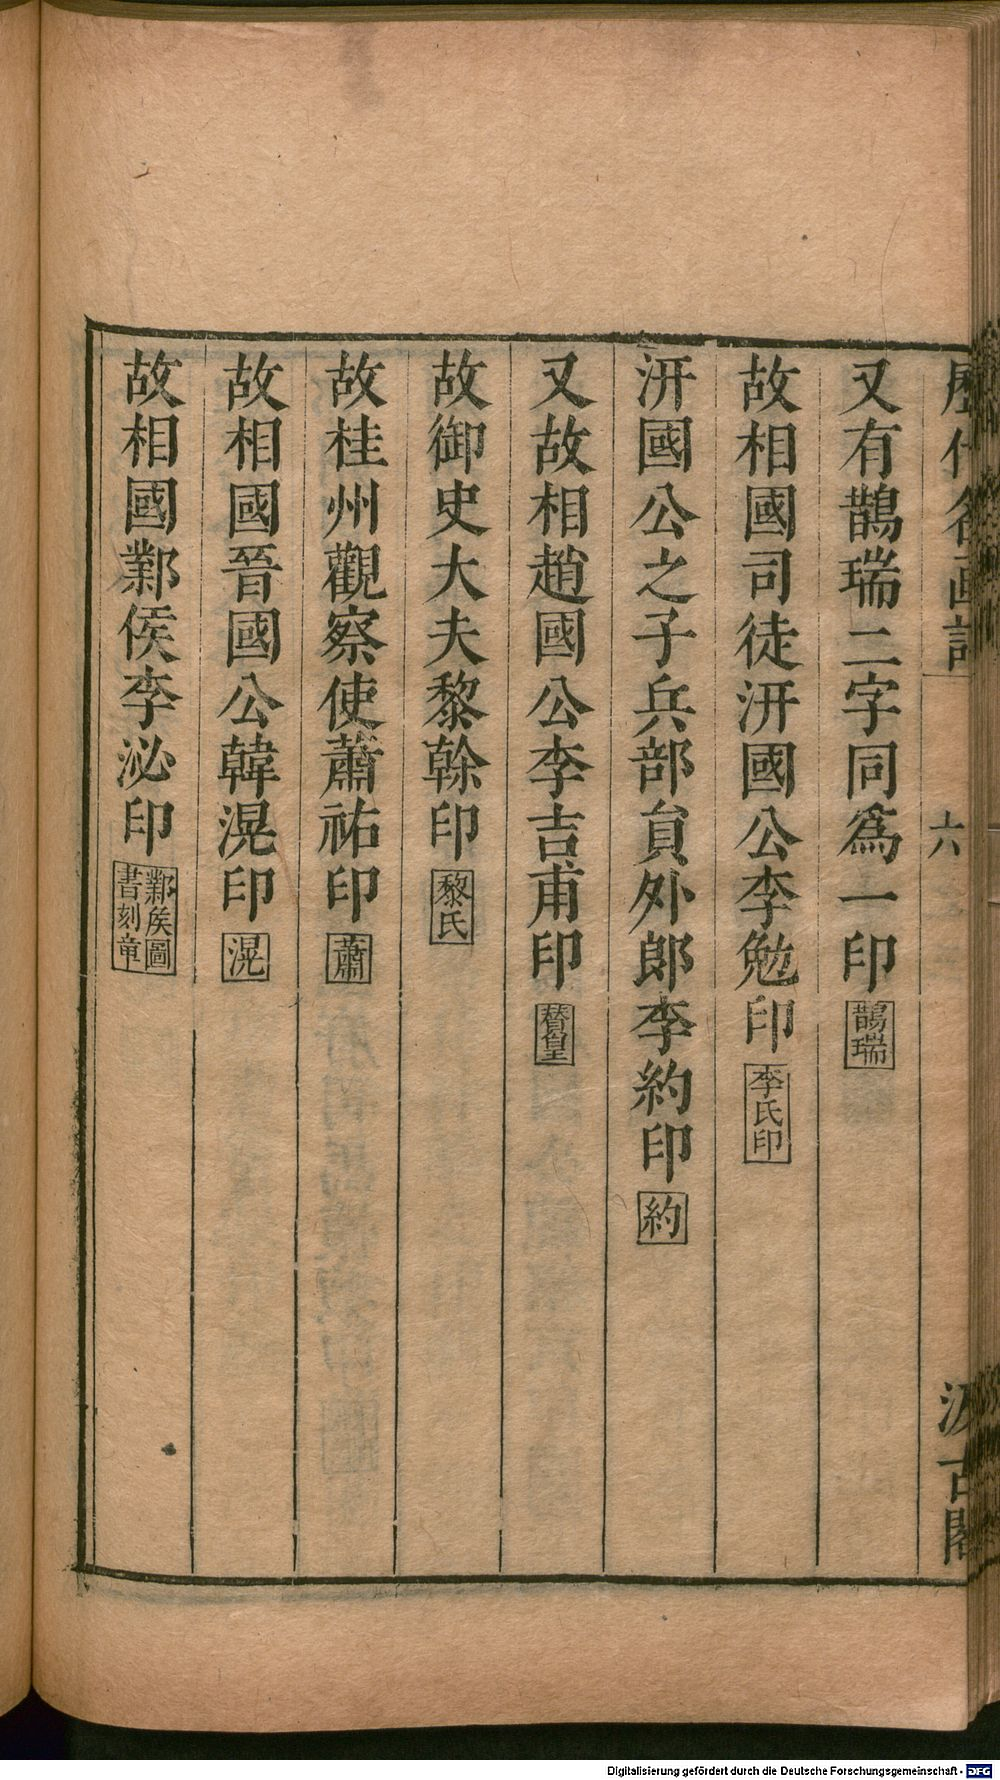 歷代名画記
六
汲古閣
又有鵲瑞二字同爲一印 鵲瑞
故相國司徒汧國公李勉印 李氏印
汧國公之子兵部貟外郎李約印 約
又故相趙國公李吉甫印 賛皇
故御史大夫黎幹印 黎氏
故桂州觀察使蕭祐印 蕭
故相國晉國公韓滉印 滉
故相國鄴侯李泌印 鄴矦圖書刻章
Digitalisierung gefördert durch die Deutsche Forschungsgemeinschaft - DFG